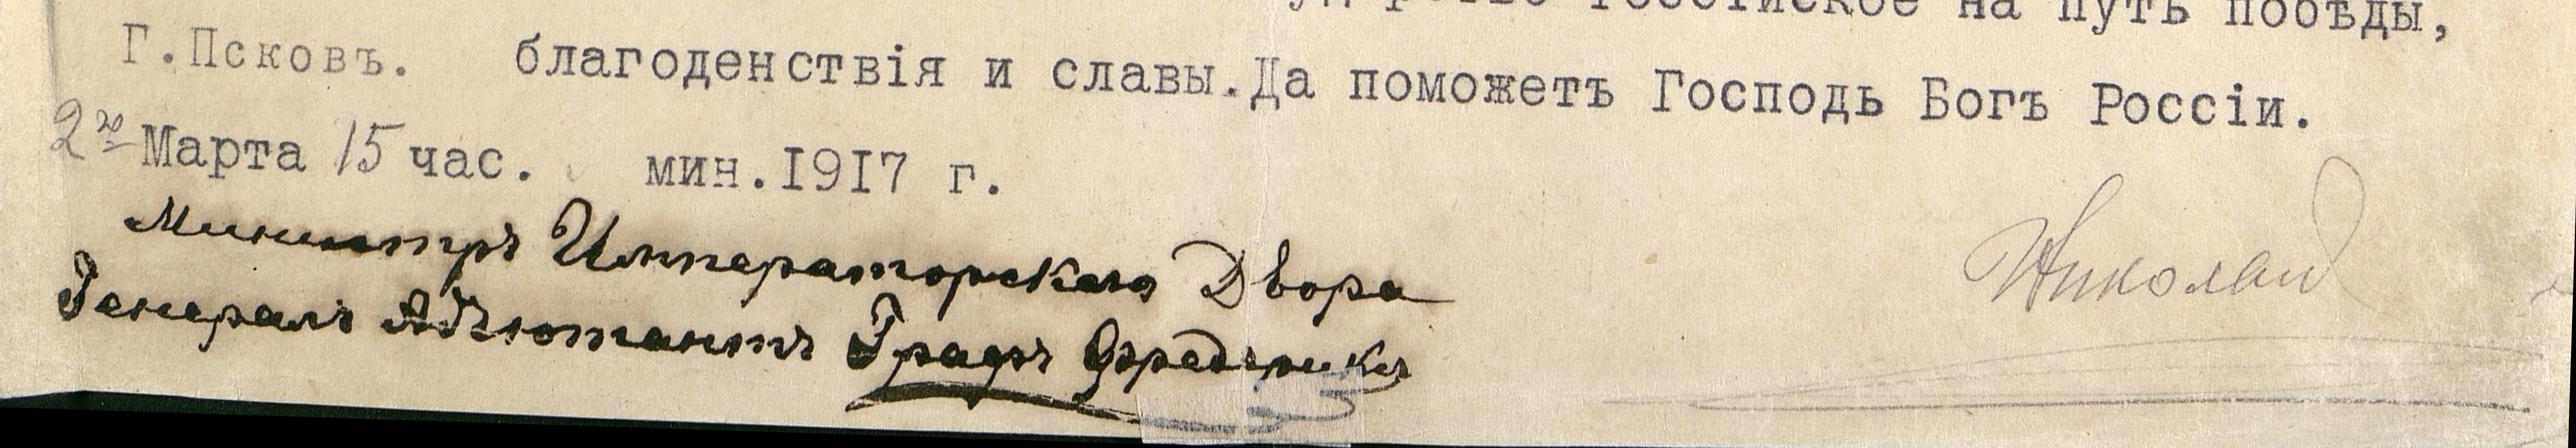 на путь побѣды,
Г.Псковъ. благоденствія и славы.Да поможетъ Господь Богъ Россіи.
2го Марта 15 час. мин.1917 г.
Министръ Императорскаго Двора
Николай
Генералъ Адъютантъ Графъ Фредериксъ